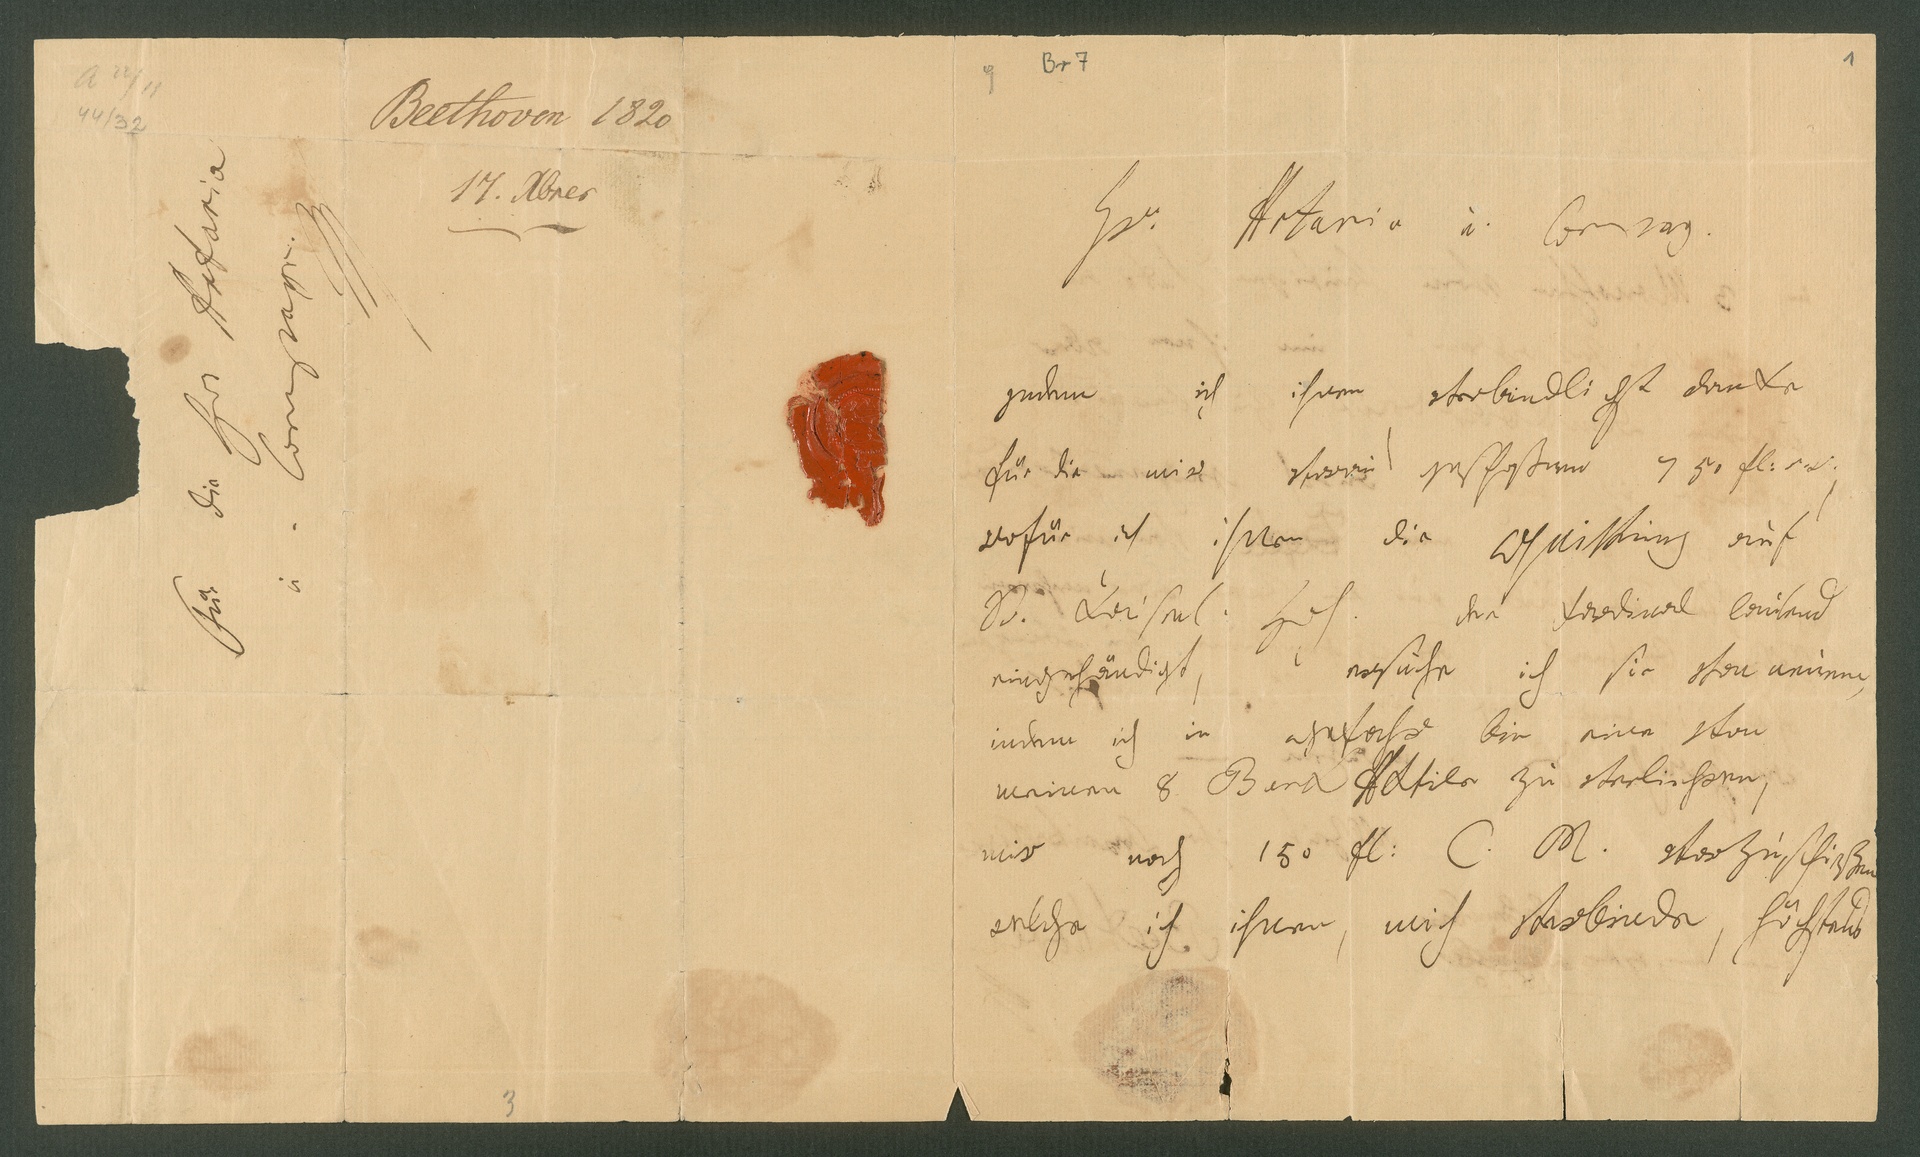 a 22/11
44/32
Beethoven 1820
17. Xbner
Für die Hr Artaria
u. Compagn.
9
Br 7
1
Hr. Artaria u. Compag.
indem ich ihnen verbindlichst danke
für die mir schon vorgeschoßenen 750 fl:
wofür ich ihnen die Quittung auf
Sr. Kaiserl. Hoh. den Kardinal lautend
eingehändigt, ersuche ich sie von neuem,
indem ich in gefahr bin eine von
meinen 8 Bank Aktien zu verliehren,
mir noch 150 fl: C. M. vorzuschießen
welche ich ihnen, mich verbinde, höchstens
3